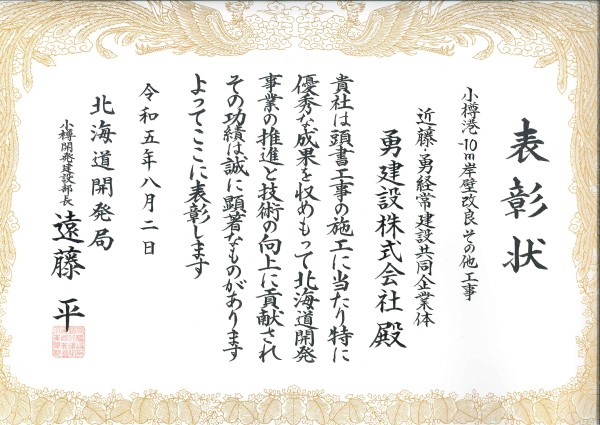 表彰状
小樽港-10m岸壁改良その他工事
近藤・勇経常建設共同企業体
勇建設株式会社殿
貴社は頭書工事の施工に当たり特に
優秀な成果を収めもって北海道開発
事業の推進と技術の向上に貢献され
その功績は誠に顕著なものがあります
よってここに表彰します
令和五年八月二日
北海道開発局
小樽開発建設部長 遠藤平